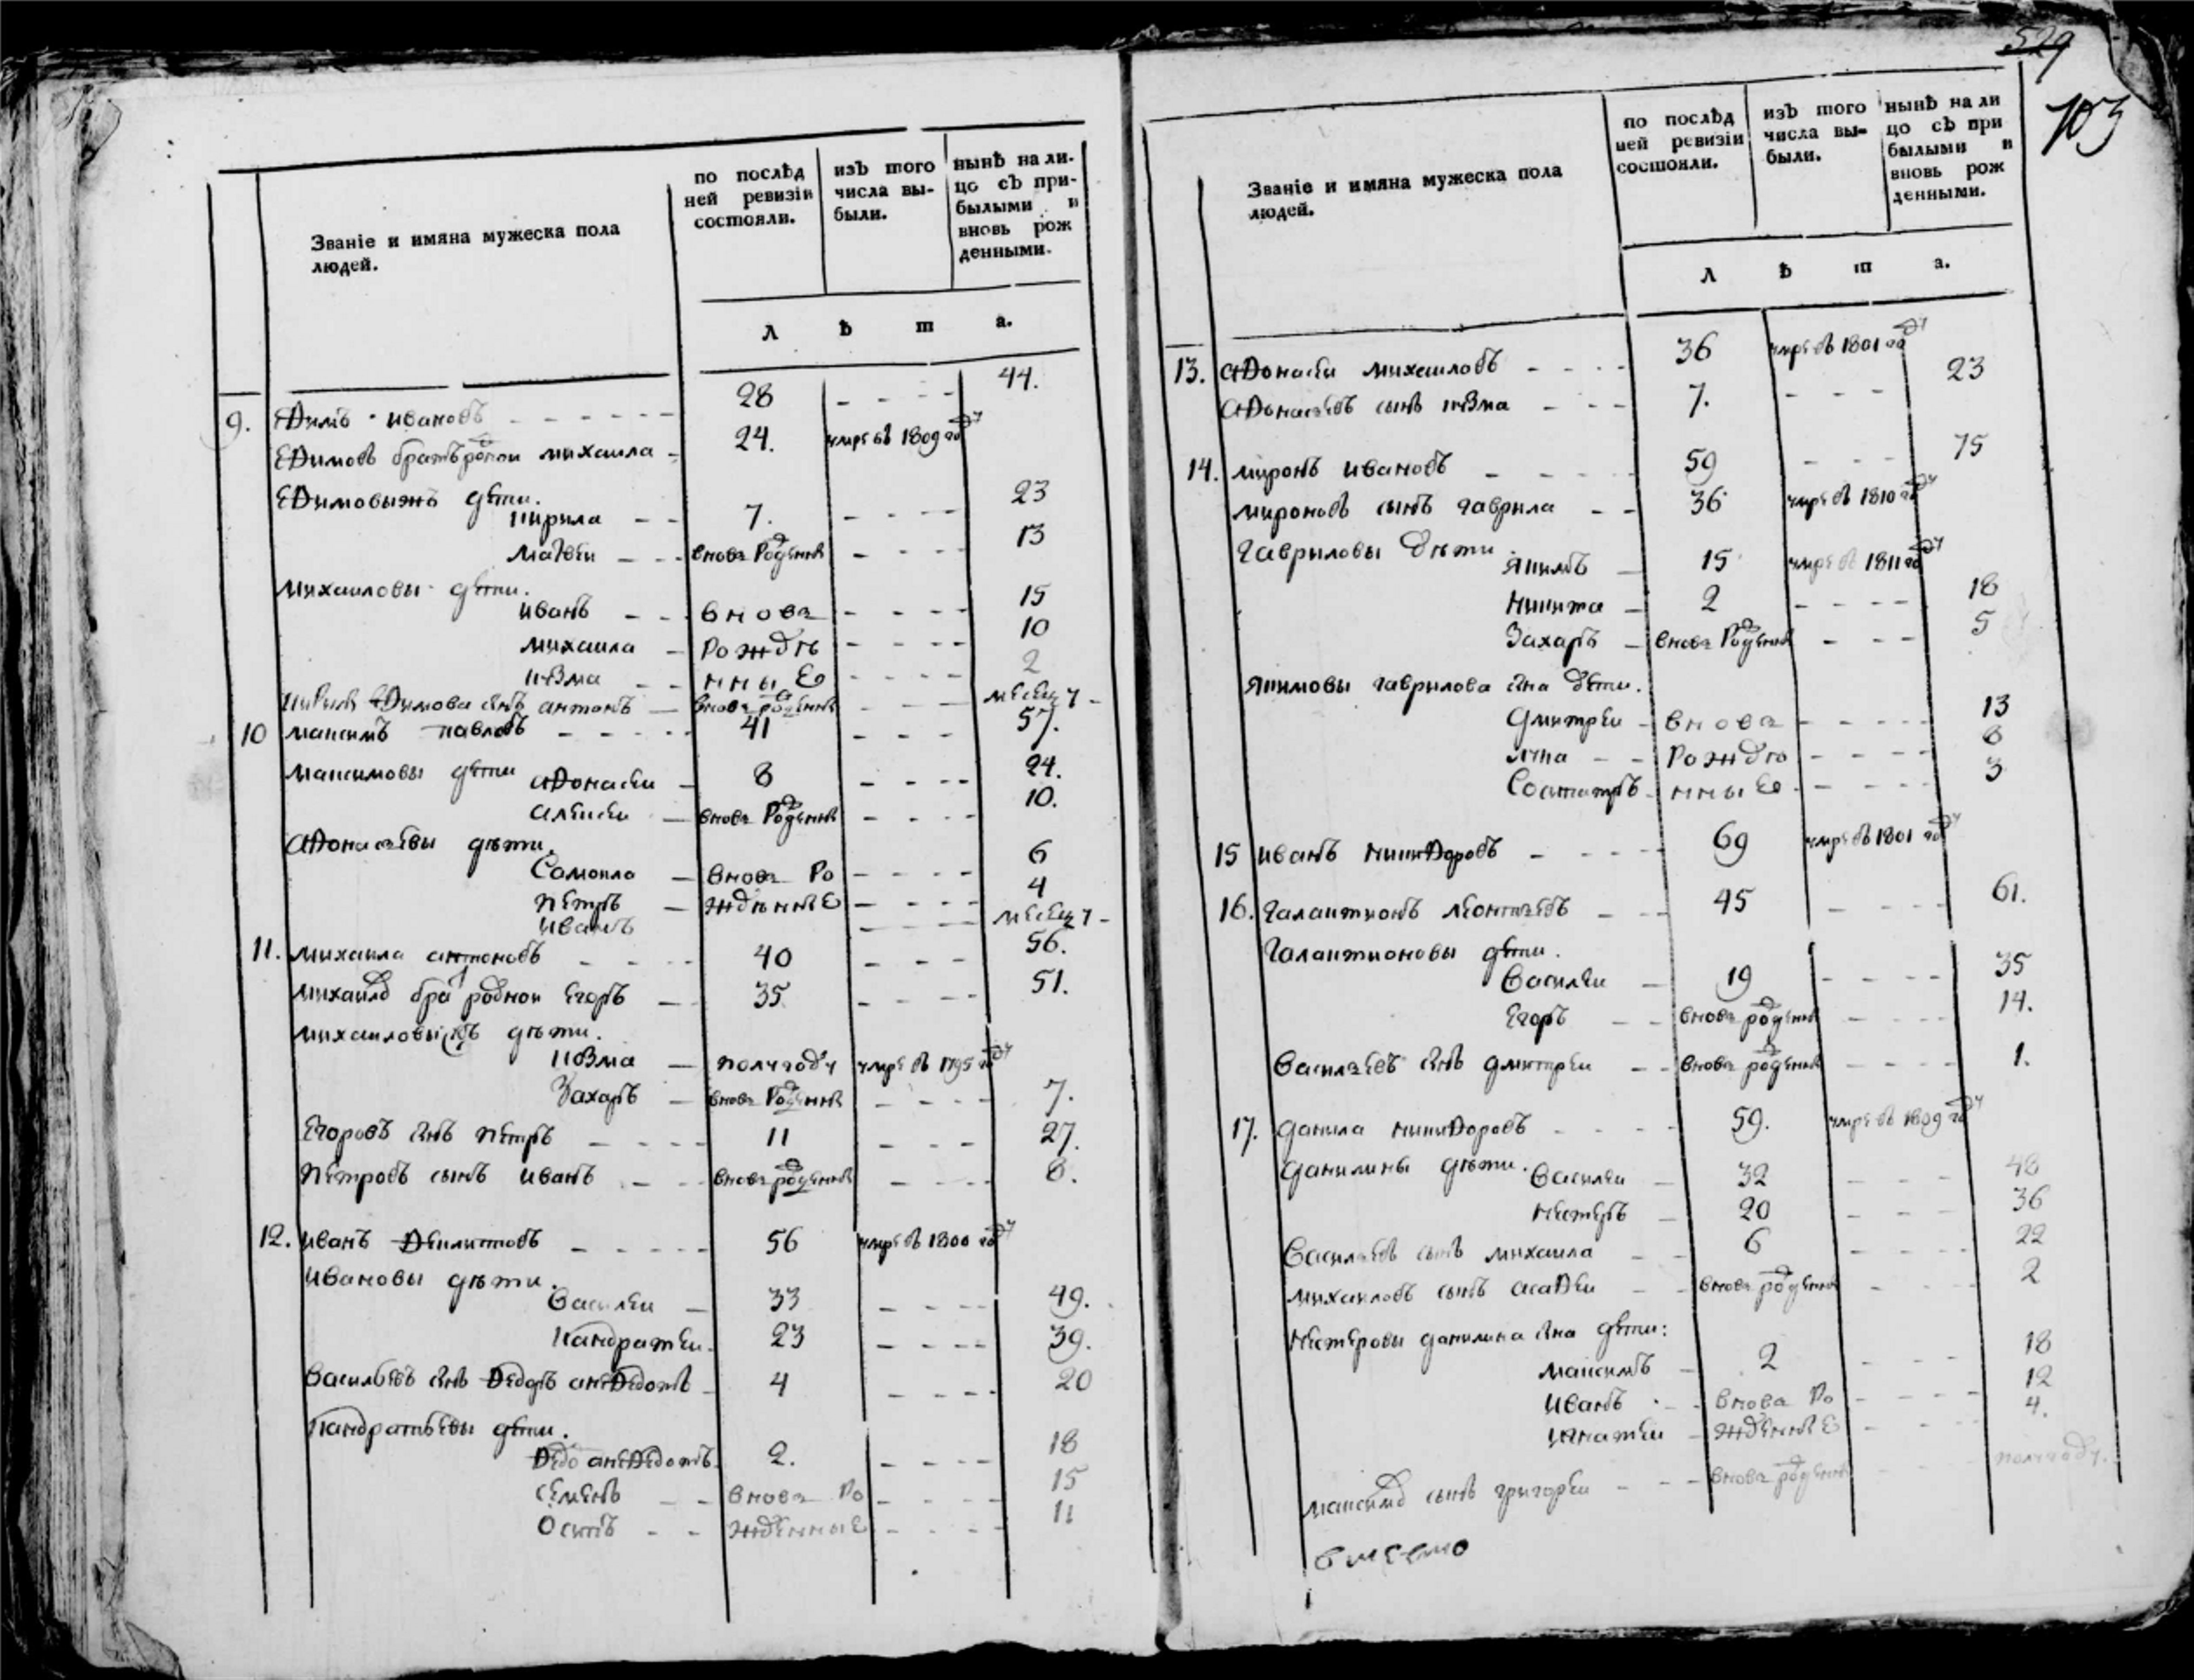 Званіе и имяна мужеска пола людей.
по послѣдней ревизіи состояли.
изъ того числа вы-были.
нынѣ на ли-цо съ при-былыми и вновь рожденными.
Л ѣ т а.
9. Ефимъ ивановъ 28 - - - - 44.
Ефимовъ братъ родной михаила - 24. умре въ 1809 году
Ефимовы жъ дети.
кирила - - 7. - - - - 23
матвеи - - вновь рожденной - - - - 13
михаиловы дети.
иванъ - - внова - - - - 15
михаила - рожде - - - - 10
кузма - - нные - - - - 2
кирилы Ефимова сынъ антонъ - вновь рожденной - - - месецу -
10 максимъ павловъ - - - - 41 - - - 57.
максимовы дети афонасеи - 8 - - - - 24.
алексеи - вновь рожденной - - - - 10.
афонасьевы дѣти.
Самоила - вновь ро - - - - 6
петръ - жденные - - - - 4
иванъ - - - - месецу -
11. михаила антоновъ - - - - 40 - - - 56.
михаилы братъ родной Егоръ - 35 - - - - 51.
михаиловы дѣти.
кузма - полугоду умре въ 1795 году
Захаръ - вновь рожденной - - - - 7.
Егоровъ сынъ петръ - - - - 11 - - - 27.
петровъ сынъ иванъ - - вновь рожденной - - - - 8.
12. иванъ Филиповъ - - - - 56 умре въ 1800 году
ивановы дѣти.
Василеи - 33 - - - - 49.
кандратеи - 23 - - - - 39.
Васильевъ сынъ Федотъ - 4 - - - - 20
кандратьевы дети.
2. - - - - 18
семенъ - - вновь ро - - - - 15
Осипъ - - жденные - - - - 11
529
103
Званіе и имяна мужеска пола людей.
по послѣдней ревизіи состояли.
изъ того числа вы-были.
нынѣ на ли цо съ при былыми и вновь рожденными.
Л ѣ т а.
13. афонасеи михаиловъ - - - - 36 умре въ 1801 году
афонасьевъ сынъ кузма - - - 7. - - - 23
14. миронъ ивановъ - - - - 59 - - - 75
мироновъ сынъ гаврила - - 36 умре въ 1810 году
Гавриловы дѣти.
якимъ - 15 умре въ 1811 году
никита - 2 - - - - 18
Захаръ - вновь рожденной - - - 5
якимовы гаврилова сына дети.
дмитреи - внова - - - - 13
лука - - рожде - - - - 8
Состатръ - нные - - - - 3
15 иванъ никифоровъ - - - - 69 умре въ 1801 году
16. Галактионъ леонтьевъ - - - 45 - - - 61.
Галактионовы дети.
Василеи - 19 - - - - 35
Егоръ - - вновь рожденной - - - - 14.
Васильевъ сынъ дмитреи - - вновь рожденной - - - - 1.
17. данила никифоровъ - - - - 59. умре въ 1809 году
данилины дѣти. Василеи - 32 - - - 48
нестеръ - 20 - - - 36
Васильевъ сынъ михаила - - 6 - - - - 22
михаиловъ сынъ асафеи - - вновь рожденной - - - 2
нестеровы данилина сына дети:
максимъ - 2 - - - 18
иванъ - - внова ро - - - - 12
игнатеи - жденные - - - 4.
максимовъ сынъ григореи - - - вновь рожденной - - полугоду.